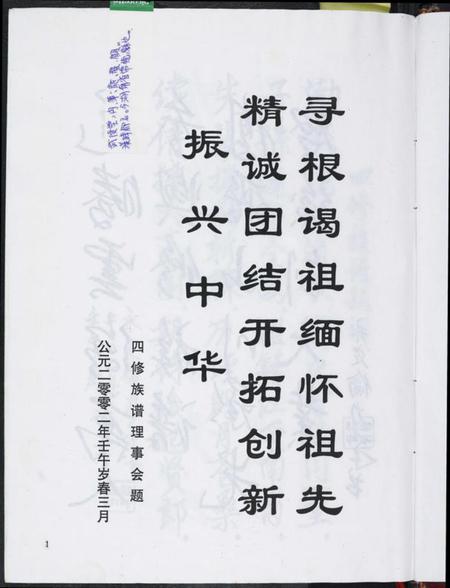 寻根谒祖缅怀祖先
精诚团结开拓创新
振兴中华
四修族谱理事会题
公元二零零二年壬午岁春三月
1